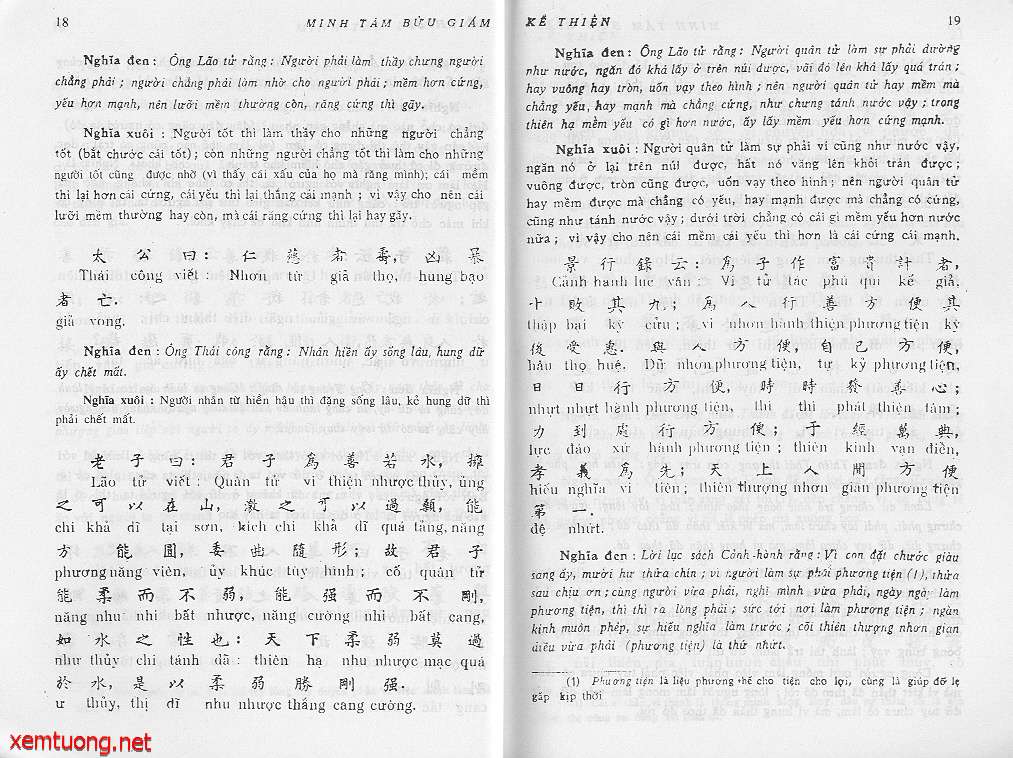 18 MINH TÂM BỬU GIÁM
Nghĩa đen : Ông Lão tử rằng : Người phải làm thầy chưng người
chẳng phải ; người chẳng phải làm nhờ cho người phải ; mềm hơn cứng,
yếu hơn mạnh, nên lưỡi mềm thường còn, răng cứng thì gãy.
Nghĩa xuôi : Người tốt thì làm thầy cho những người chẳng
tốt (bắt chước cái tốt) ; còn những người chẳng tốt thì làm cho những
người tốt cũng được nhờ (vì thấy cái xấu của họ mà răng mình); cái mềm
thì lại hơn cái cứng, cái yếu thì lại thắng cái mạnh ; vì vậy cho nên cái
lưỡi mềm thường hay còn, mà cái răng cứng thì lại hay gãy.
太 公 曰 : 仁 慈 者 壽, 凶 暴
Thái công viết : Nhơn từ giả thọ, hung bạo
者 亡.
giả vong.
Nghĩa đen : Ông Thái công rằng : Nhân hiền ấy sống lâu, hung dữ
ấy chết mất.
Nghĩa xuôi : Người nhân từ hiền hậu thì đặng sống lâu, kẻ hung dữ thì
phải chết mất.
老 子 曰 : 君 子 為 善 若 水, 擁
Lão tử viết : Quân tử vi thiện nhược thủy, ủng
之 可 以 在 山, 激 之 可 以 過 顙, 能
chi khả dĩ tại sơn, kích chi khả dĩ quá tảng, năng
方 能 圓, 委 曲 隨 形 ; 故 君 子
phương năng viên, ủy khúc tùy hình ; cố quân tử
能 柔 而 不 弱, 能 强 而 不 剛,
năng nhu nhi bất nhược, năng cường nhi bất cang,
如 水 之 性 也 : 天 下 柔 弱 莫 過
như thủy chi tánh dã : thiên hạ nhu nhược mạc quá
於 水, 是 以 柔 弱 勝 剛 强.
ư thủy, thị dĩ nhu nhược thắng cang cường.
KẾ THIỆN 19
Nghĩa đen : Ông Lão tử rằng : Người quân tử làm sự phải dường
như nước, ngăn đó khả lấy ở trên núi được, vãi đó lên khả lấy quá trán ;
hay vuông hay tròn, uốn vạy theo hình ; nên người quân tử hay mềm mà
chẳng yếu, hay mạnh mà chẳng cứng, như chưng tánh nước vậy ; trong
thiên hạ mềm yếu có gì hơn nước, ấy lấy mềm yếu hơn cứng mạnh.
Nghĩa xuôi : Người quân tử làm sự phải ví cũng như nước vậy,
ngăn nó ở lại trên núi được, hất nó văng lên khỏi trán được ;
vuông được, tròn cũng được, uốn vạy theo hình ; nên người quân tử
hay mềm được mà chẳng có yếu, hay mạnh được mà chẳng có cứng,
cũng như tánh nước vậy ; dưới trời chẳng có cái gì mềm yếu hơn nước
nữa ; vì vậy cho nên cái mềm cái yếu thì hơn là cái cứng cái mạnh.
景 行 錄 云 : 爲 子 作 富 貴 計 者,
Cảnh hành lục vân : Vi tử tác phú quí kế giả,
十 敗 其 九 ; 爲 人 行 善 方 便 其
thập bại kỳ cửu ; vi nhơn hành thiện phương tiện kỳ
後 受 惠. 與 人 方 便, 自 己 方 便,
hậu thọ huệ. Dữ nhơn phương tiện, tự kỷ phương tiện,
日 日 行 方 便, 時 時 發 善 心 ;
nhựt nhựt hành phương tiện, thì thì phát thiện tâm ;
力 到 處 行 方 便 ; 千 經 萬 典,
lực đáo xứ hành phương tiện ; thiên kinh vạn điển,
孝 義 爲 先 ; 天 上 人 間 方 便
hiếu nghĩa vi tiên ; thiên thượng nhơn gian phương tiện
第 一.
đệ nhứt.
Nghĩa đen : Lời lục sách Cảnh-hành rằng : Vì con đặt chước giàu
sang ấy, mười hư thửa chín ; vì người làm sự phải phương tiện (1), thửa
sau chịu ơn ; cùng người vừa phải, nghỉ mình vừa phải, ngày ngày làm
phương tiện, thì thì ra lòng phải ; sức tới nơi làm phương tiện ; ngàn
kinh muôn phép, sự hiếu nghĩa làm trước ; cõi thiên thượng nhơn gian
điều vừa phải (phương tiện) là thứ nhứt.
(1) Phương tiện là liệu phương thế cho tiện cho lợi, cũng là giúp đỡ lẹ
gấp kịp thời
xemtuong.net